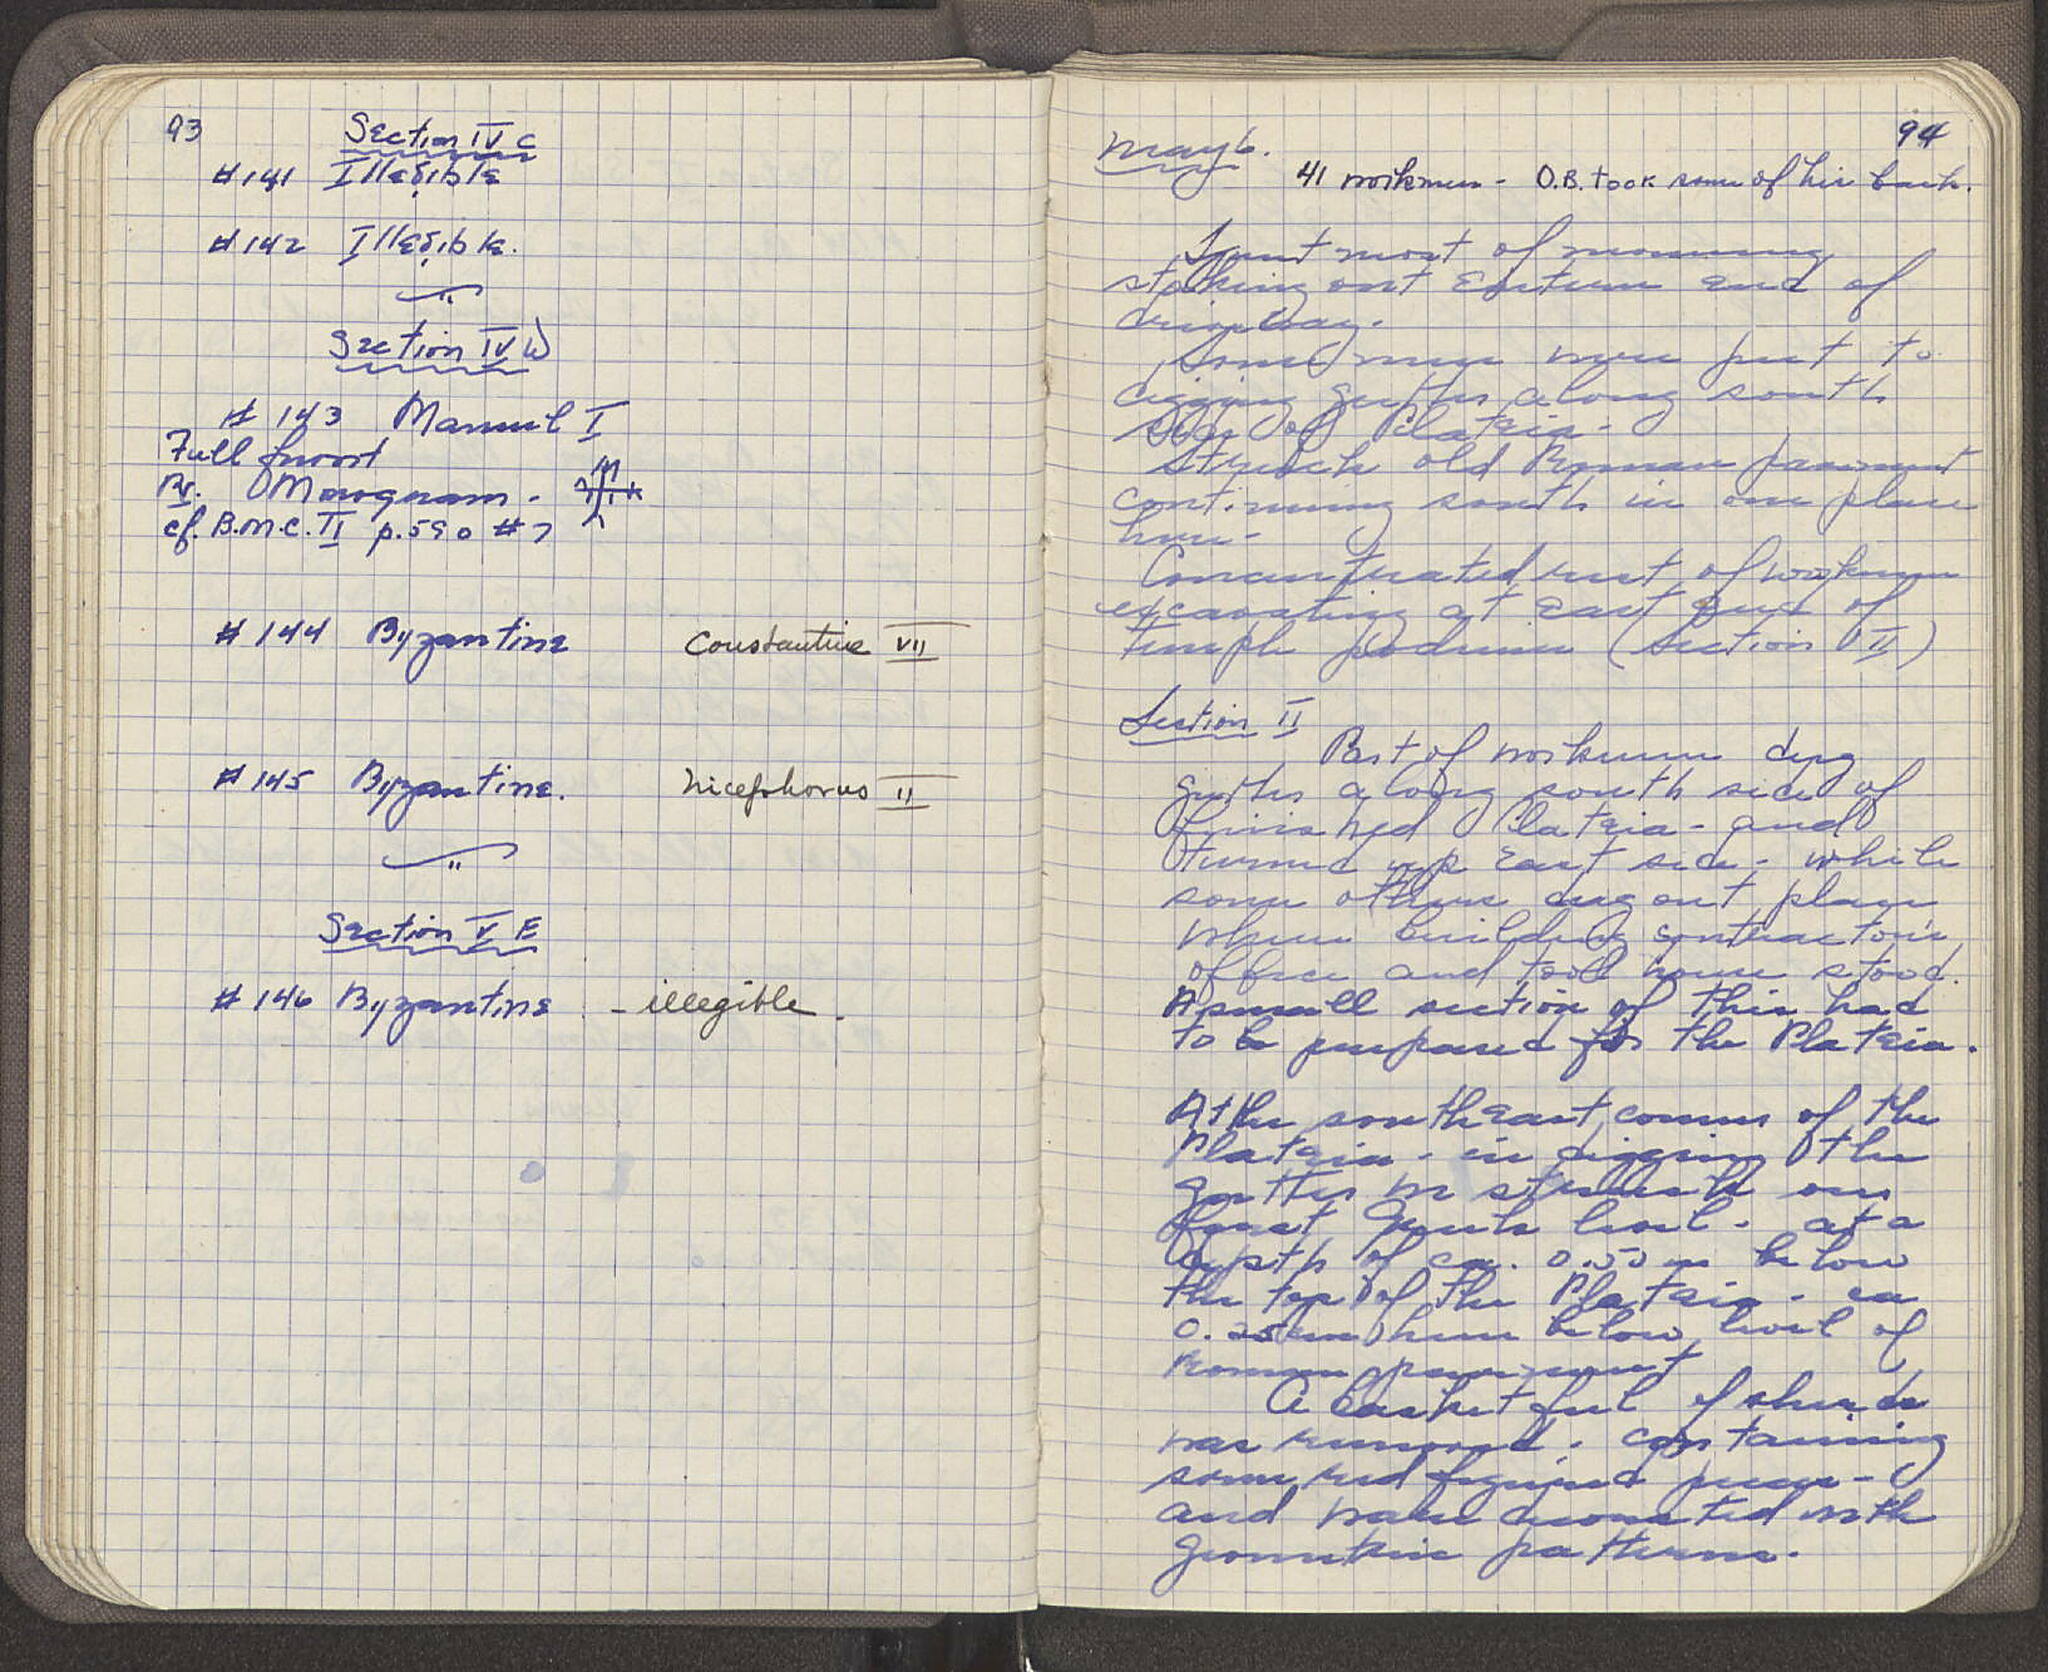 93
Section IV C
# 141 Illegible
# 142 Illegible.
Section IV W
# 143 Manuel I
Full front
Rv. Monogram -
cf. B.M.C. II p. 590 # 7
# 144 Byzantine Constantine VII
# 145 Byzantine. Nicephorus II
Section V E
# 146 Byzantine - illegible -
94
May 6.
41 workmen - O.B. took some of his back.
Spent most of morning
staking out Eastern end of
driveway.
Some men were put to
digging gutter along south
side of Plateia -
Struck old Roman pavement
continuing south in one place
here -
Concentrated rest of workmen
excavating at East end of
temple podium (Section VII)
Section II
Part of workmen dug
gutter along south side of
finished Plateia - and
turned up East side - while
some others dug out place
where building contractor's
office and tool house stood.
A small section of this had
to be prepared for the Plateia.
At the southEast corner of the
Plateia - in digging the
gutter we struck our
first Greek level - at a
depth of ca. 0.50 m below
the top of the Plateia - ca
0.25 m here below level of
Roman pavement
A basket full of sherds
was removed - containing
some red figured pieces -
and ware decorated with
geometric patterns.